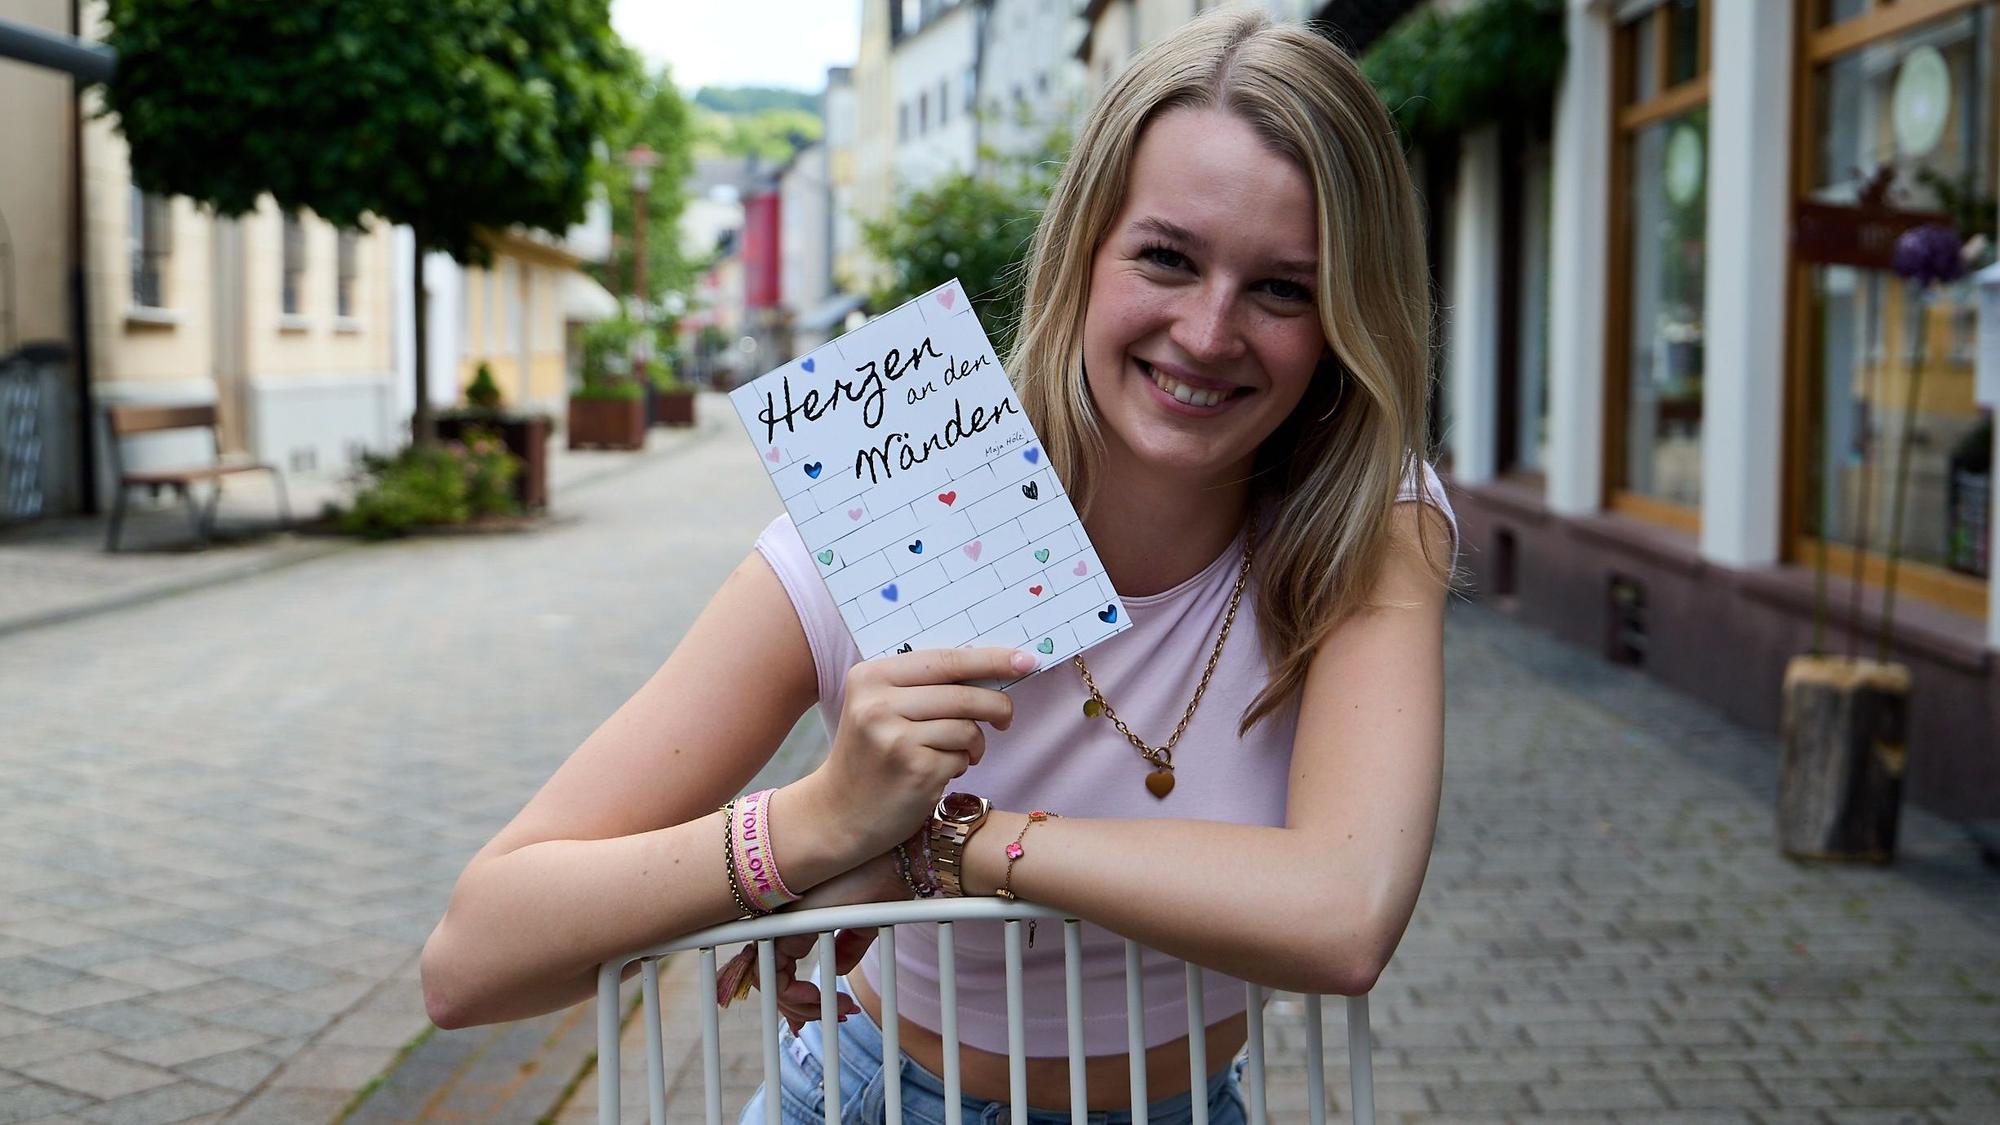 Herzen
an den
Wänden
Maja Hölz
YOU LOVE